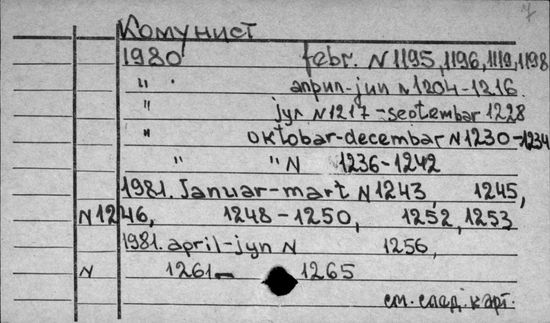 7
Комунист
1980 febr. N 1195, 1196, 1119, 1198
" април-јун N 1204-1216.
" јул N 1217 - septembar 1228
" oktobar-decembar N 1230-1234
" " N 1236-1242
1981. Januar-mart N 1243, 1245,
N 1246, 1248-1250, 1252, 1253
1981. april-jyn N 1256,
N 1261- 1265
см. след. карт.